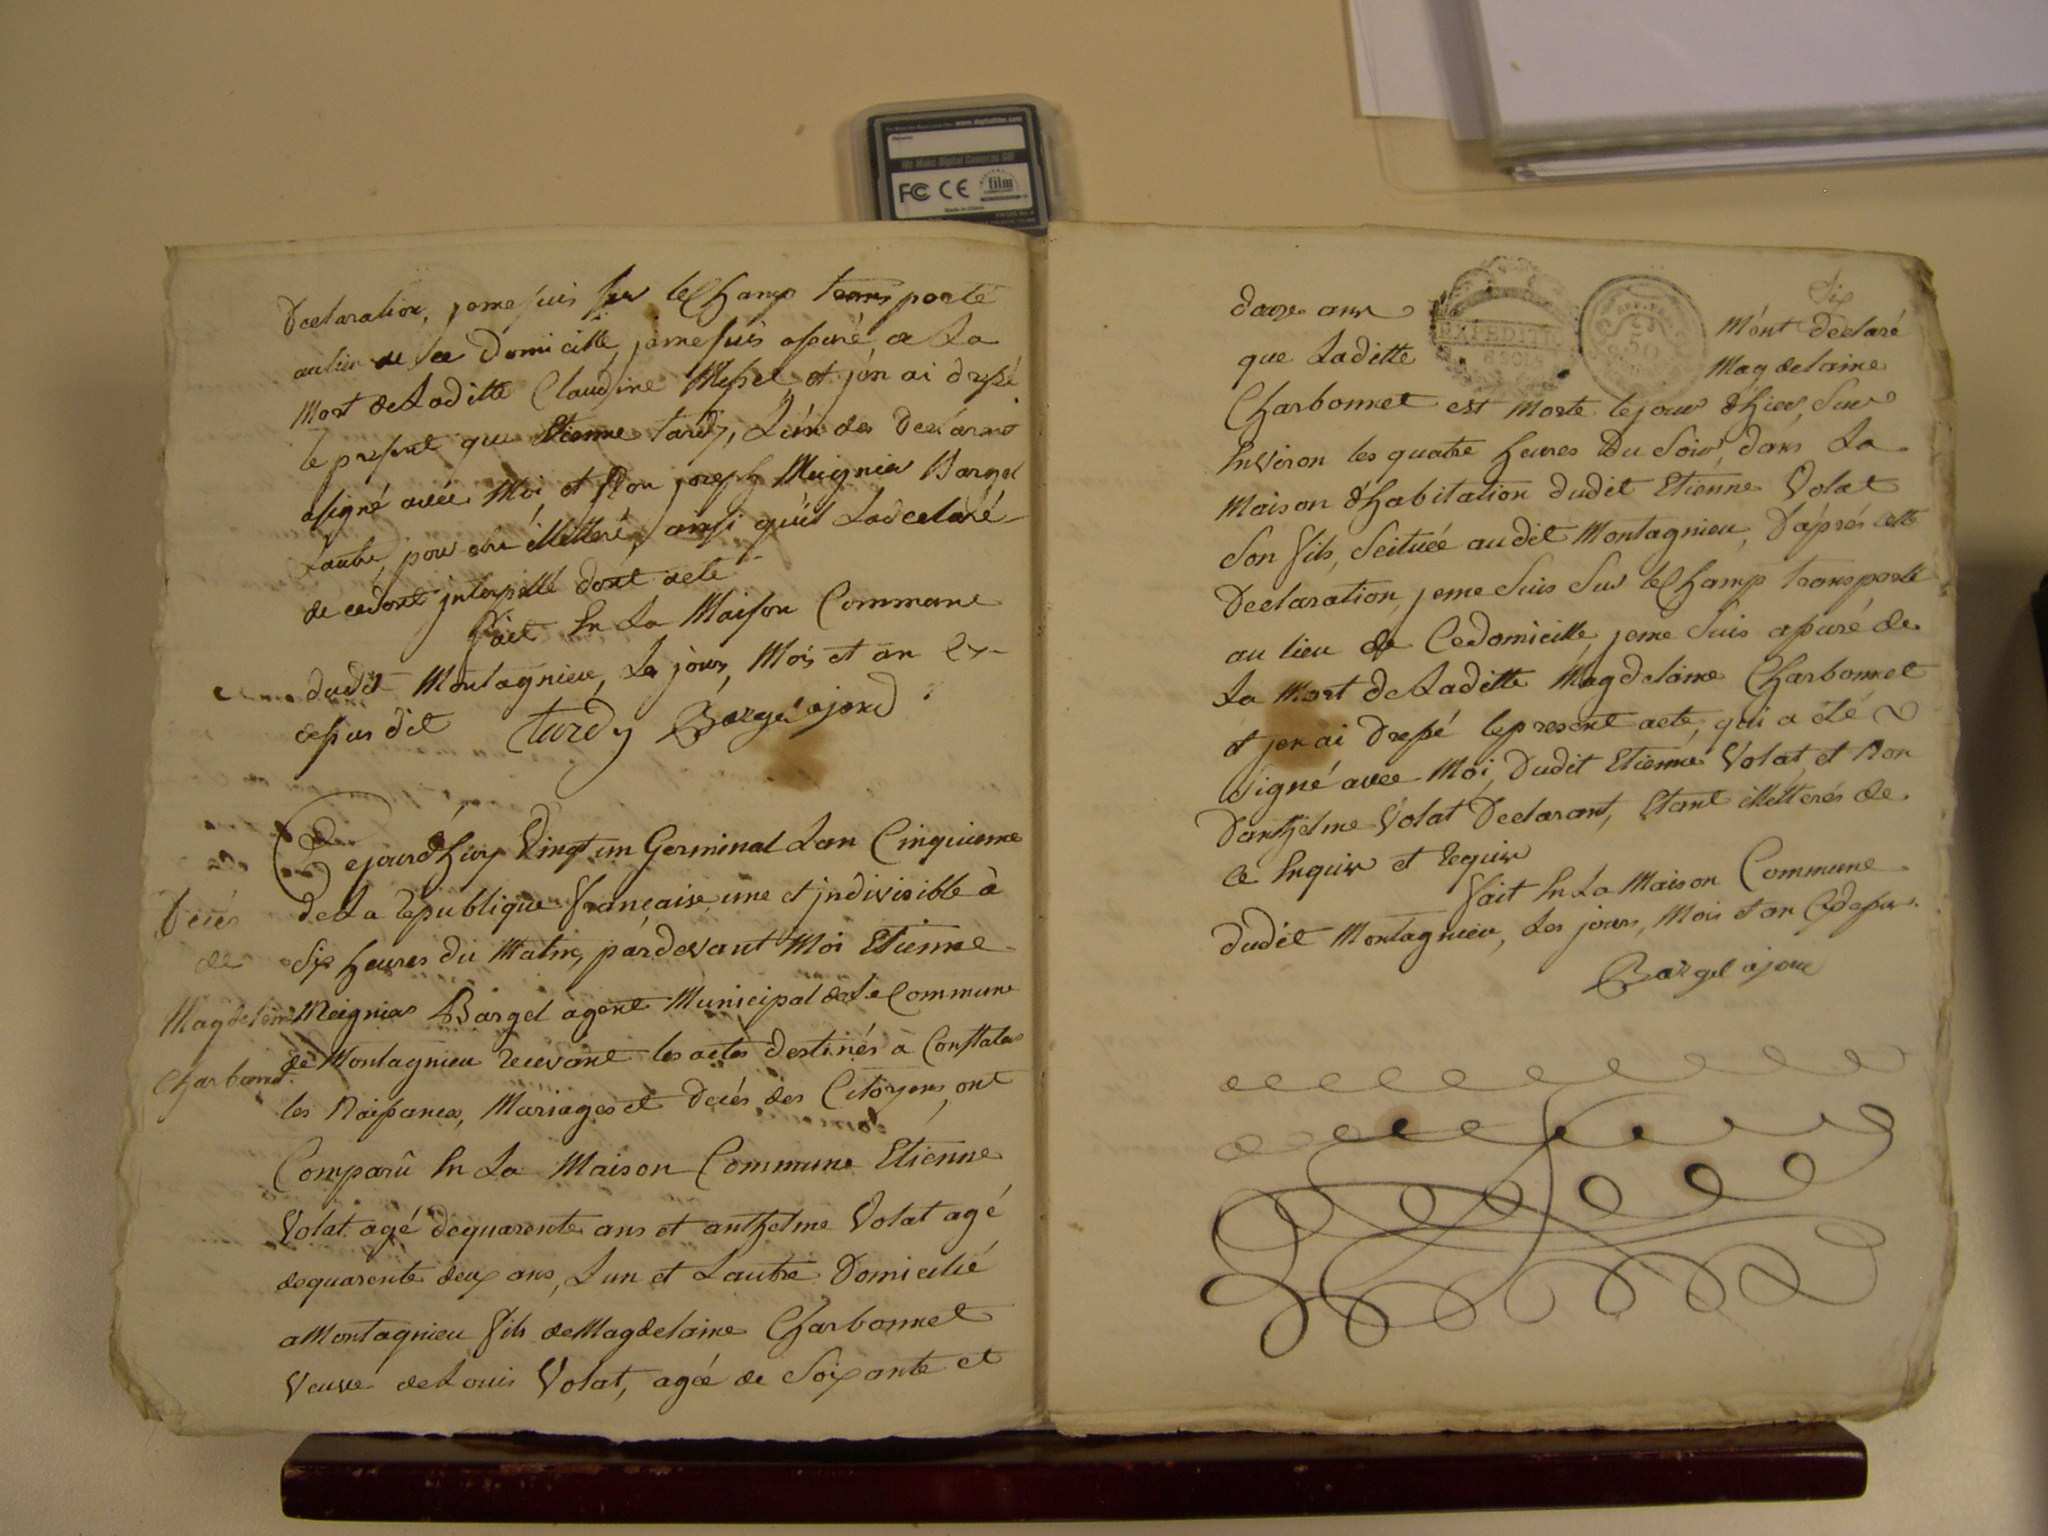 www.digitalfilm.com
We Make Digital Cameras Go!
FC CE film
Declaration, jeme suis sur le Champ transporté
au lieu de Ce Domicille, jeme suis assuré, de La
Mort de Laditte Claudine et j'en ai dressé
le present que Etienne tardy, L'un des Declarant
a signé avéc Moi, et Non joseph Meignier Bargel
L'autre, pour etre illitteré, ainsi qu'il La declaré
de cedont interpellé dont acte
fait En La Maison Commune
dudit Montagnieu, Le jours, Mois et an Cy-
depus dit tardy Bargel ajend
Décés
de
Magdelaine
Charbonnet
Cejourd'huy Vingt un Germinal Lan Cinquieme
de La republique française une et indivisible à
Six heures du Matin, pardevant Moi Etienne
Meignier Bargel agent Municipal de La Commune
de Montagnieu recevant les actes destinés à Constater
les Naissances, Mariages et Décés des Citoyens, ont
Comparû En La Maison Commune Etienne
Volat agé dequarente ans et anthelme Volat agé
dequarente deux ans, L'un et L'autre Domicilié
a Montagnieu fils de Magdelaine Charbonnet
Veuve de Louis Volat, agée de Soixante et
Six
douze ans M'ont Declaré
que Laditte Magdelaine
Charbonnet est Morte le jour d'hier, Sur
Environ les quatre heures Du Soir, dans La
Maison d'habitation dudit Etienne Volat
Son fils, Scituée audit Montagnieu, D'aprés cette
Declaration, jeme Suis Sur le Champ transporté
au lieu de Cedomicille, jeme Suis assuré de
La Mort de Laditte Magdelaine Charbonnet
et jen ai Dressé le present acte, qui a été
Signé avec Moi, Dudit Etienne Volat, et Non
D'anthelme Volat Declarant, Etant illitterés de
Ce Enquis et requis
fait En La Maison Commune
dudit Montagnieu, Les jours, Mois et an Cydepus.
Bargel ajend